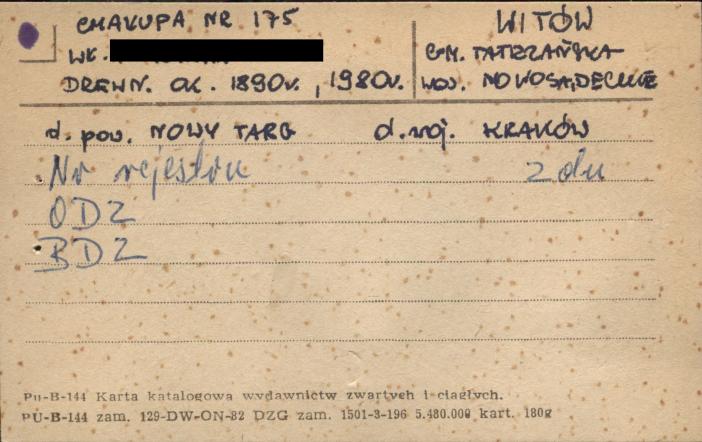 CHAŁUPA NR 175
WŁ.
DREWN. OK. 1890r., 1980r.
WITÓW
GM. TATRZAŃSKA
WOJ. NOWOSĄDECKIE
d. pow. NOWY TARG d. woj. KRAKÓW
Nr rejestru z dn
ODZ
BDZ
PU-B-144 Karta katalogowa wydawnictw zwartych i ciągłych.
PU-B-144 zam. 129-DW-ON-82 DZG zam. 1501-3-196 5.480.000 kart. 180g